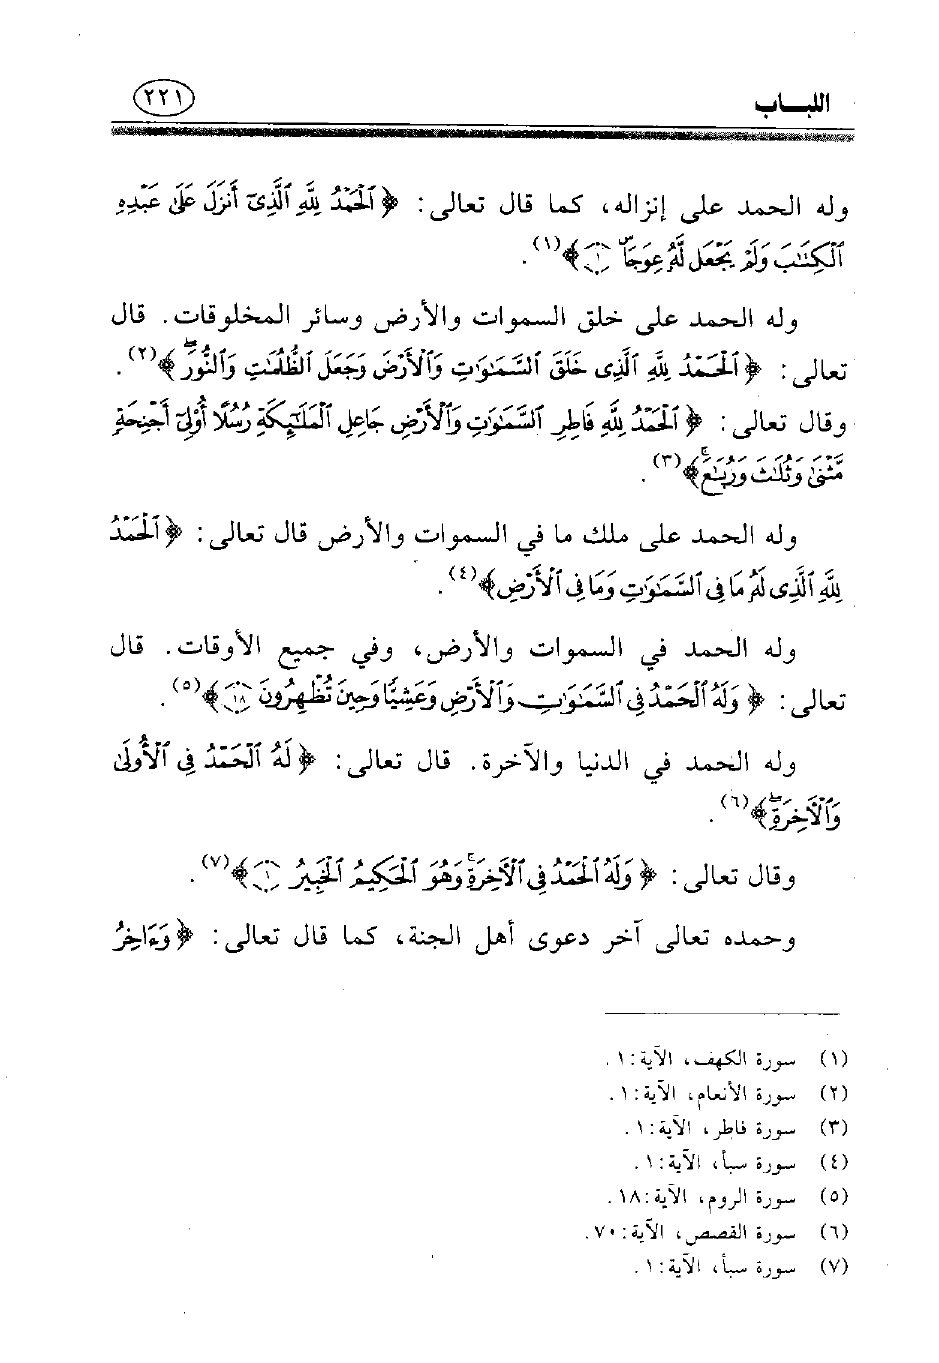 اللبـــاب
٢٢١
وله الحمد على إنزاله، كما قال تعالى: ﴿ ٱلْحَمْدُ لِلَّهِ ٱلَّذِىٓ أَنزَلَ عَلَىٰ عَبْدِهِ
ٱلْكِتَٰبَ وَلَمْ يَجْعَل لَّهُۥ عِوَجَاۜ ١﴾(١).
وله الحمد على خلق السموات والأرض وسائر المخلوقات. قال
تعالى: ﴿ ٱلْحَمْدُ لِلَّهِ ٱلَّذِى خَلَقَ ٱلسَّمَٰوَٰتِ وَٱلْأَرْضَ وَجَعَلَ ٱلظُّلُمَٰتِ وَٱلنُّورَۖ ﴾(٢).
وقال تعالى: ﴿ ٱلْحَمْدُ لِلَّهِ فَاطِرِ ٱلسَّمَٰوَٰتِ وَٱلْأَرْضِ جَاعِلِ ٱلْمَلَٰٓئِكَةِ رُسُلًا أُو۟لِىٓ أَجْنِحَةٍ
مَّثْنَىٰ وَثُلَٰثَ وَرُبَٰعَۚ ﴾(٣).
وله الحمد على ملك ما في السموات والأرض قال تعالى: ﴿ ٱلْحَمْدُ
لِلَّهِ ٱلَّذِى لَهُۥ مَا فِى ٱلسَّمَٰوَٰتِ وَمَا فِى ٱلْأَرْضِ﴾(٤).
وله الحمد في السموات والأرض، وفي جميع الأوقات. قال
تعالى: ﴿ وَلَهُ ٱلْحَمْدُ فِى ٱلسَّمَٰوَٰتِ وَٱلْأَرْضِ وَعَشِيًّا وَحِينَ تُظْهِرُونَ ١٨ ﴾(٥).
وله الحمد في الدنيا والآخرة. قال تعالى: ﴿ لَهُ ٱلْحَمْدُ فِى ٱلْأُولَىٰ
وَٱلْأَخِرَةِۖ ﴾(٦).
وقال تعالى: ﴿ وَلَهُ ٱلْحَمْدُ فِى ٱلْأَخِرَةِۚ وَهُوَ ٱلْحَكِيمُ ٱلْخَبِيرُ ١ ﴾(٧).
وحمده تعالى آخر دعوى أهل الجنة، كما قال تعالى: ﴿ وَءَاخِرُ
(١) سورة الكهف، الآية: ١.
(٢) سورة الأنعام، الآية: ١.
(٣) سورة فاطر، الآية: ١.
(٤) سورة سبأ، الآية: ١.
(٥) سورة الروم، الآية: ١٨.
(٦) سورة القصص، الآية: ٧٠.
(٧) سورة سبأ، الآية: ١.